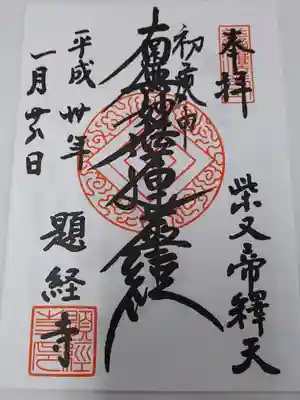 奉拝
柴又帝釋天
初庚申
南無妙法蓮華經
平成卅年
一月廿八日
題経寺